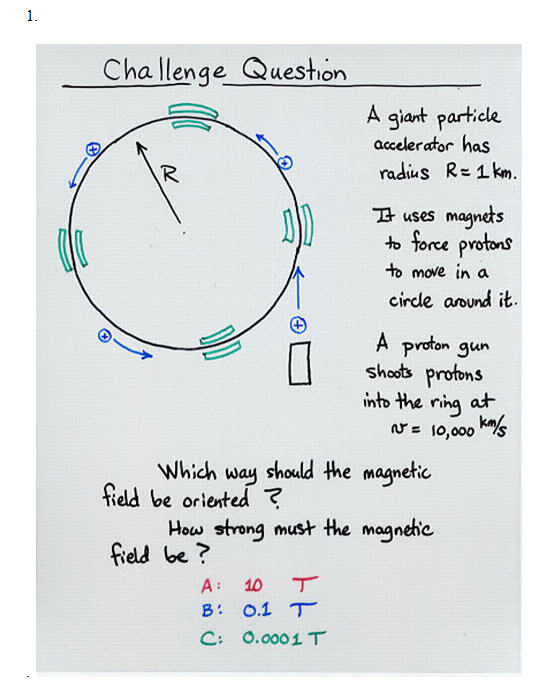 1.
Challenge Question
R
A giant particle
accelerator has
radius R = 1 km.
It uses magnets
to force protons
to move in a
circle around it.
A proton gun
shoots protons
into the ring at
v = 10,000 km/s
+
+
+
+
Which way should the magnetic
field be oriented ?
How strong must the magnetic
field be ?
A: 10 T
B: 0.1 T
C: 0.0001 T
.